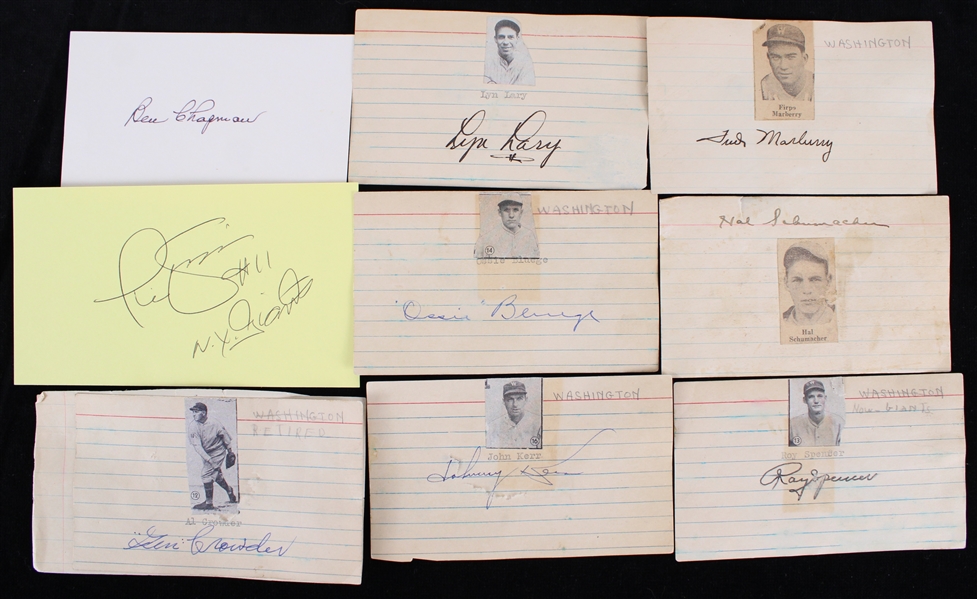 Ben Chapman
Lyn Lary
Lyn Lary
WASHINGTON
Firpo
Marberry
Fred Marberry
#11
N.Y. Giants
WASHINGTON
14
Ossie Bluege
"Ossie" Bluege
Hal Schumacher
Hal
Schumacher
WASHINGTON
RETIRED
12
Al Crowder
"Gen" Crowder
WASHINGTON
16
John Kerr
Johnny Kerr
WASHINGTON
Now-GIANTS
13
Roy Spencer
Roy Spencer